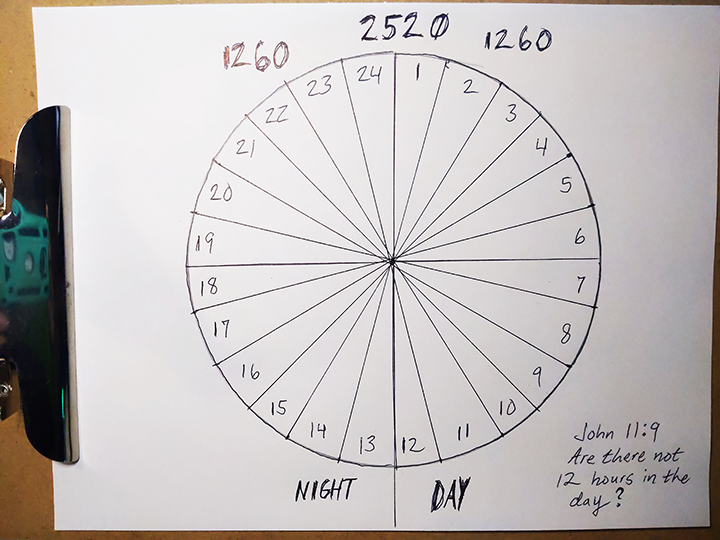 2520
1260
1260
1
2
3
4
5
6
7
8
9
10
11
12
13
14
15
16
17
18
19
20
21
22
23
24
NIGHT
DAY
John 11:9
Are there not
12 hours in the
day?